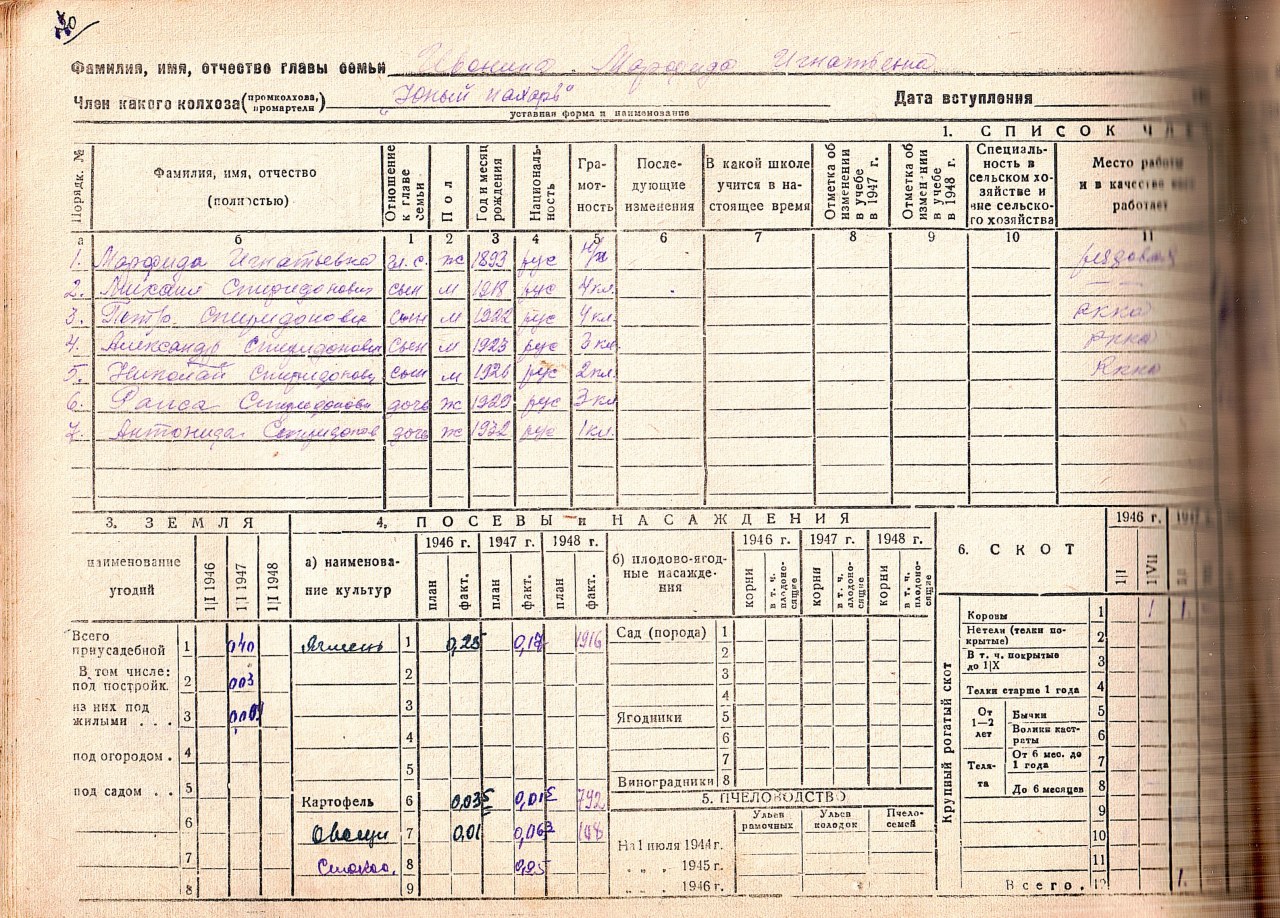 Фамилия, имя, отчество главы семьи Ивонина Марфида Игнатьевна
Член какого колхоза (промколхоза, промартели) "Юный пахарь" Дата вступления
уставная форма и наименование
1. СПИСОК
Порядк. №
Фамилия, имя, отчество (полностью)
Отношение к главе семьи
Пол
Год и месяц рождения
Националь-ность
Гра-мот-ность
После-дующие изменения
В какой школе учится в на-стоящее время
Отметка об изменении в учебе в 1947 г.
Отметка об измен-нии в учебе в 1948 г.
Специаль-ность в сельском хо-зяйстве и вне сельско-го хозяйства
Место работы и в качестве кого работает
а б 1 2 3 4 5 6 7 8 9 10 11
1. Марфида Игнатьевна гл. с. ж 1893 рус
2. Михаил Спиридонович сын м 1918 рус 4 кл.
3. Петр Спиридонович сын м 1922 рус 4 кл. ркка
4. Александр Спиридонович сын м 1923 рус 3 кл. ркка
5. Николай Спиридонович сын м 1926 рус 2 кл. Ркка
6. Раиса Спиридонов дочь ж рус 3 кл
7. Антонида Спиридонов дочь ж 1932 рус 1 кл.
3. ЗЕМЛЯ
наименование угодий
1|I 1946
1|I 1947
1|I 1948
Всего приусадебной 1 040
В том числе: под постройк. 2 003
из них под жилыми . . . 3
под огородом . 4
под садом . . 5
6
7
8
4. ПОСЕВЫ и НАСАЖДЕНИЯ
а) наименова-ние культур
1946 г. 1947 г. 1948 г.
план факт. план факт. план факт.
Ячмень 1 0,25 0,17 1916
2
3
4
5
Картофель 6 0,035 0,015 792
Овощи 7 0,01 0,063
8
9
б) плодово-ягод-ные насажде-ния
1946 г. 1947 г. 1948 г.
корни в т. ч. плодоно-сящие корни в т. ч. плодоно-сящие корни в т. ч. плодоно-сящие
Сад (порода) 1
2
3
4
Ягодники 5
6
7
Виноградники 8
5. ПЧЕЛОВОДСТВО
Ульев рамочных
Ульев колодок
Пчело-семей
На 1 июля 1944 г.
" " " 1945 г.
" " " 1946 г.
6. СКОТ
1946 г.
1|I 1|VII
Крупный рогатый скот
Коровы 1 1 1
Нетели (телки по-крытые) 2
В т. ч. покрытые до 1|X 3
Телки старше 1 года 4
От 1—2 лет
Бычки 5
Волики каст-раты 6
Теля-та
От 6 мес. до 1 года 7
До 6 месяцев 8
9
10
11
Всего. 12 1